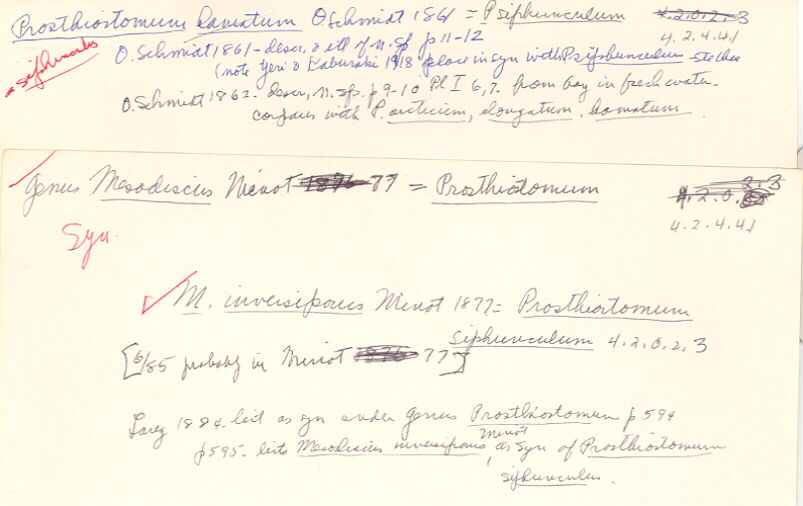 Prosthiostomum hamatum OSchmidt 1861 = P siphunculum 4.2.0.2.3
4.2.4.41
siphunculus
O. Schmidt 1861 - descr. & ill of n. sp p 11-12
(note Yeri & Kaburaki 1918 place in syn with P siphunculum
O. Schmidt 1862. descr, n. sp. p 9-10 Pl I 6, 7. from bay in fresh water.
compares with P. arcticum, elongatum, hamatum.
Genus Mesodiscus Minot 1876 77 = Prosthiostomum 2.3
4.2.0.
4.2.4.41
Syn.
M. inversiporus Minot 1877 = Prosthiostomum
siphunculum 4.2.0.2.3
[6/85 probably in Minot 1876 77]
Lang 1884. list as syn under genus Prosthiostomum p 594
p 595. lists Mesodiscus inversiporus Minot, as syn of Prosthiostomum
siphunculus.